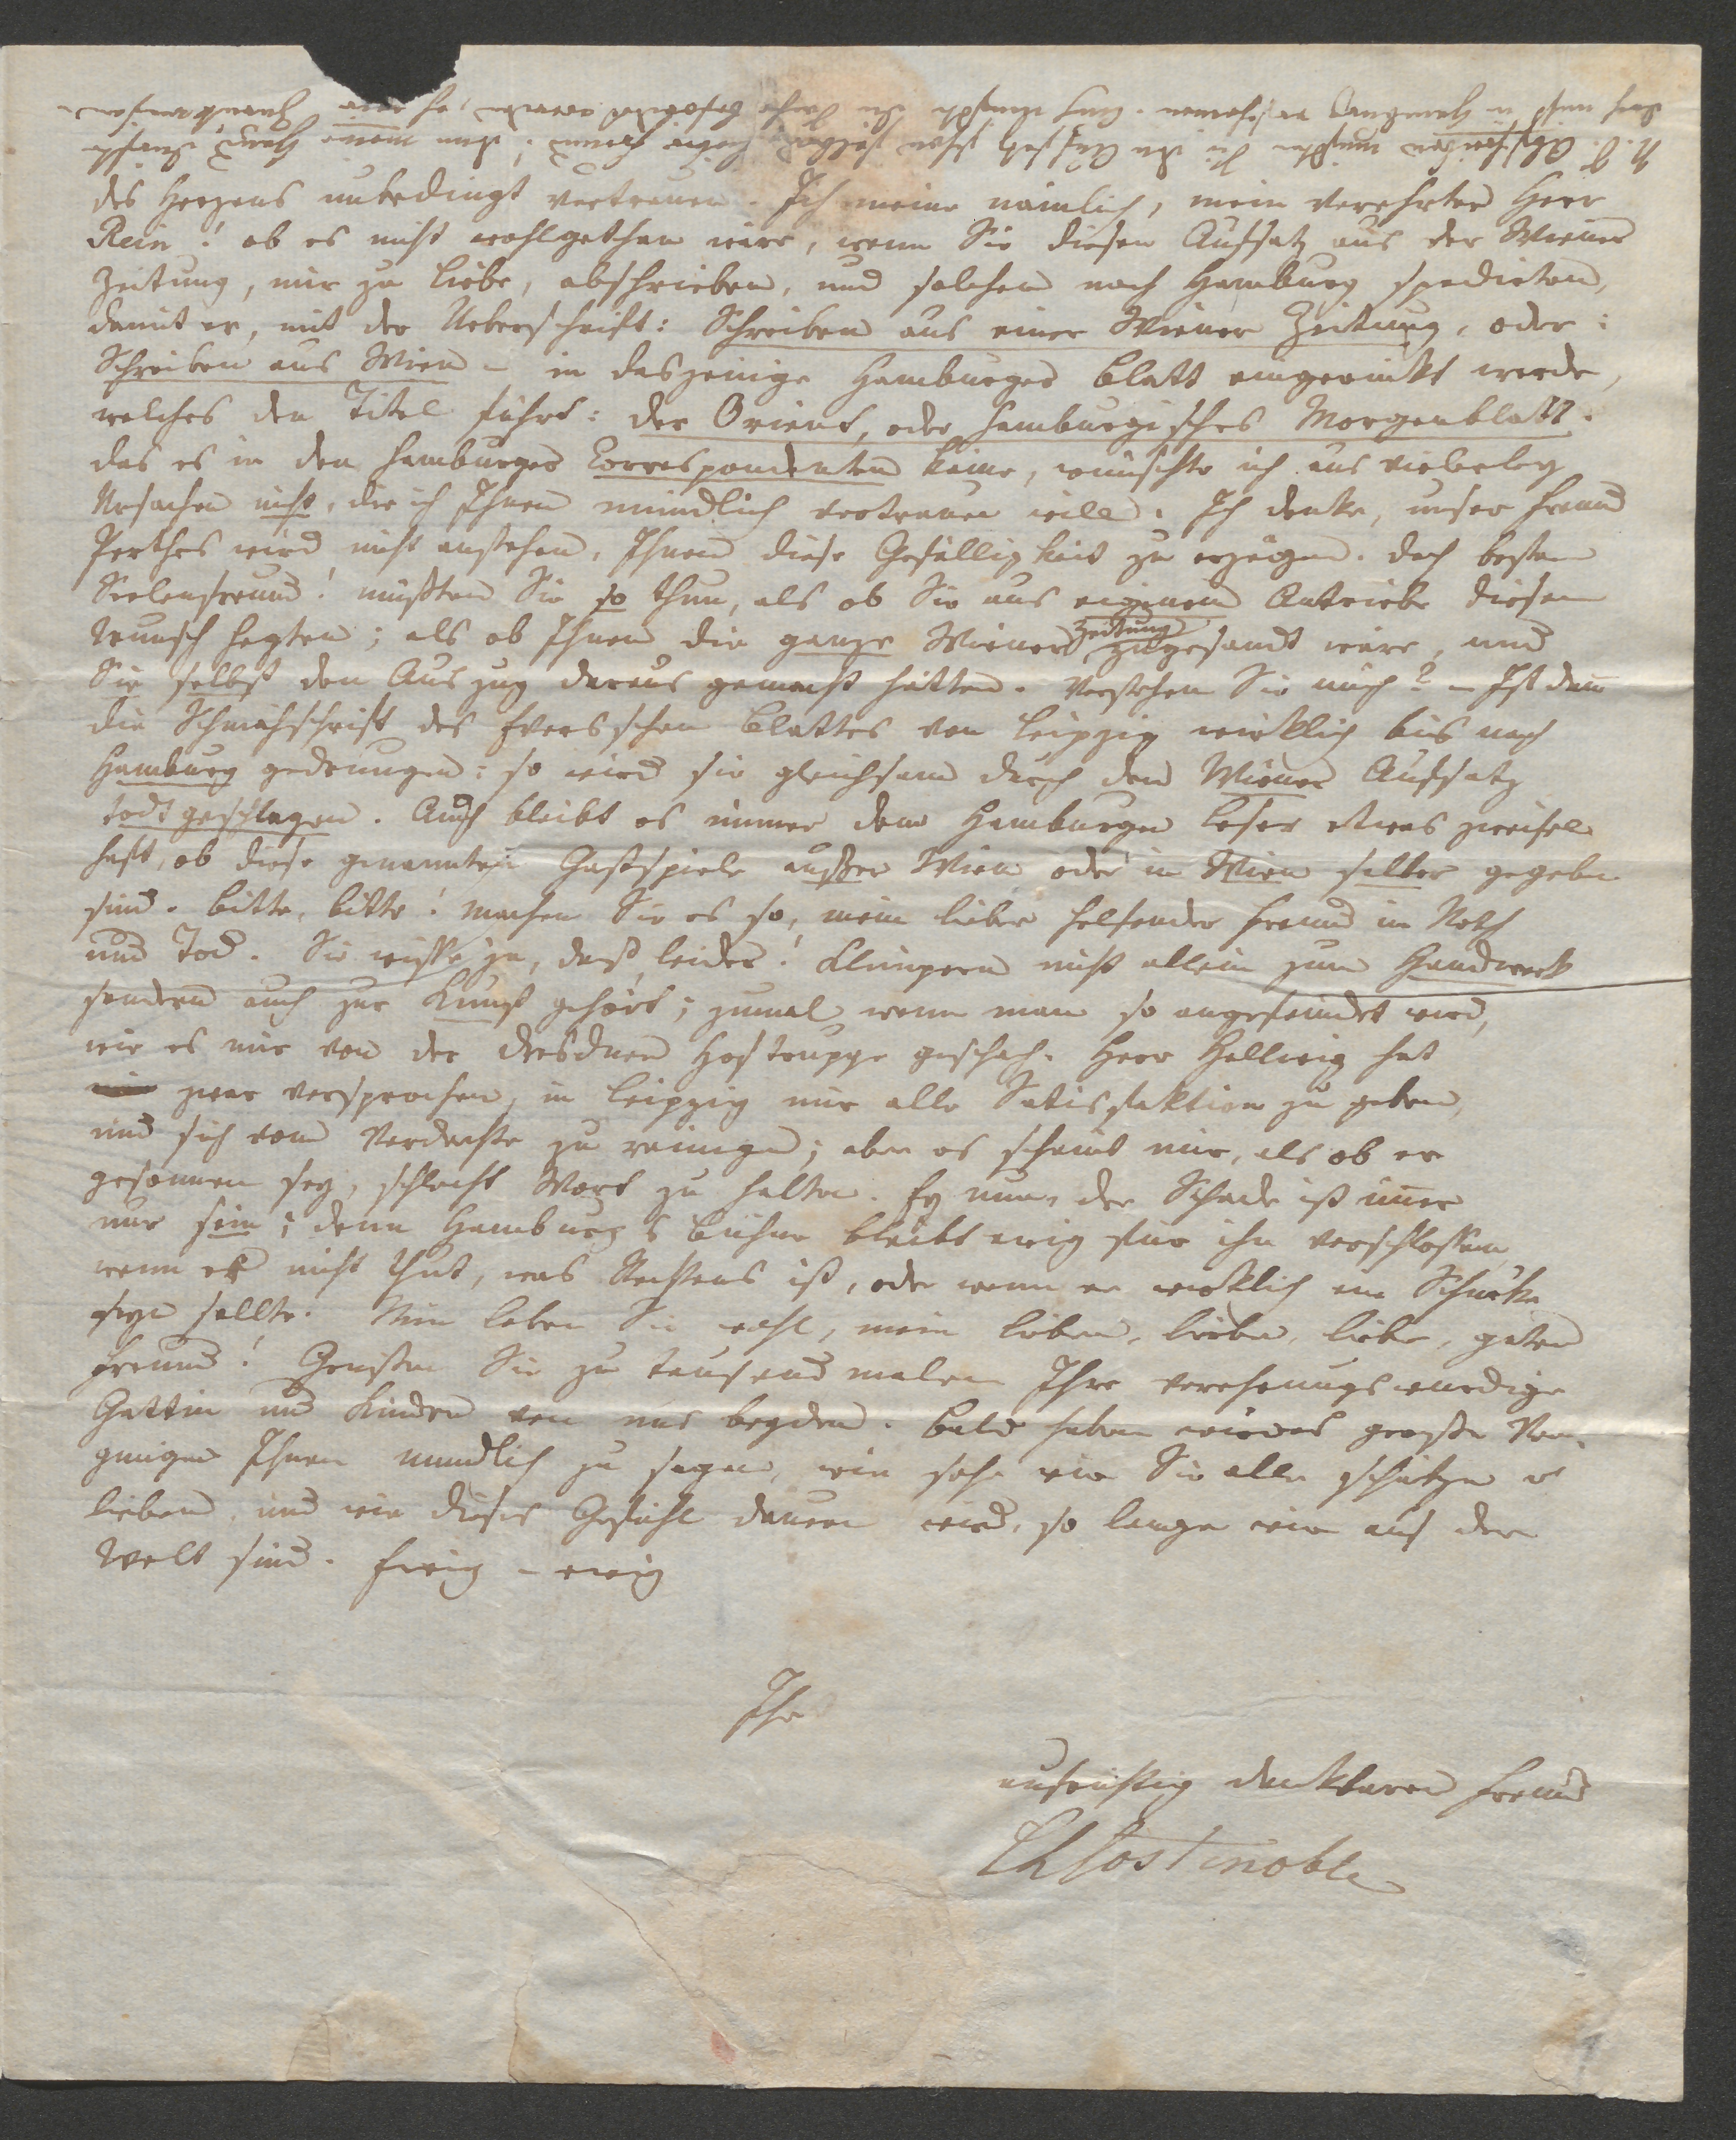 des Herzens unbedingt vertrauen. Ich meine nämlich, mein verehrter Herr
Rein! ob es nicht wohlgethan wäre, wenn Sie diesen Aufsatz aus der Wiener
Zeitung, mir zu Liebe, abschrieben, und solchen nach Hamburg spedirten,
damit er, mit der Ueberschrift: Schreiben aus einer Wiener Zeitung, oder:
Schreiben aus Wien – in dasjenige Hamburger Blatt eingerückt werde,
welches den Titel führt: der Orient, oder Hamburgisches Morgenblatt.
das es in den Hamburger Correspondenten käme, wünschte ich aus vielerley
Ursachen nicht, die ich Ihnen mündlich vertrauen will. Ich denke, unser Freund
Perthes wird nicht anstehen, Ihnen diese Gefälligkeit zu erzeigen. doch bester
Seelenfreund! müßten Sie so thun, als ob Sie aus eigenem Antriebe diesen
Wunsch hegten; als ob Ihnen die ganze Wiener Zeitung zugesandt wäre, und
Sie selbst den Auszug daraus gemacht hätten. Verstehen Sie mich? – Ist dann
die Schmähschrift des Blattes von Leipzig wirklich bis nach
Hamburg gedrungen: so wird sie gleichsam durch den Wiener Aufsatz
todt geschlagen. Auch bleibt es immer dem Hamburger Leser etwas zweifel
haft, ob diese genannten Gastspiele außer Wien oder in Wien selber gegeben
sind. Bitte, bitte! machen Sie es so, mein lieber helfender Freund in Noth
und Tod. Sie wissen ja, daß leider! Klimpern nicht allein zum Handwerk
sondern auch zur Kunst gehört; zumal wenn man so angefeindet wird,
wie es mir von der dresdner Hoftruppe geschah. Herr Hellwig hat
zwar versprochen, in Leipzig mir alle Satisfaktion zu geben,
und sich vom Verdachte zu reinigen; aber es scheint mir, als ob er
gesonnen sey, schlecht Wort zu halten. Ey nun, der Schade ist immer
nur sein; denn Hamburgs Bühne bleibt ewig für ihn verschlossen,
wenn er nicht thut, was Rechtens ist, oder wenn er wirklich ein Schurke
seyn sollte. Nun leben Sie wohl, mein lieber, lieber, lieber, guter
Freund! Grüßen Sie zu tausend malen Ihre verehrungswürdige
Gattin und Kinder von uns beyden. Bald haben wir das große Ver-
gnügen Ihnen mündlich zu sagen, wie sehr wir Sie alle schätzen u
lieben, und wie dieses Gefühl dauern wird, so lange wir auf der
Welt sind. Ewig – ewig
Ihr
aufrichtig dankbarer Freund
Costenoble